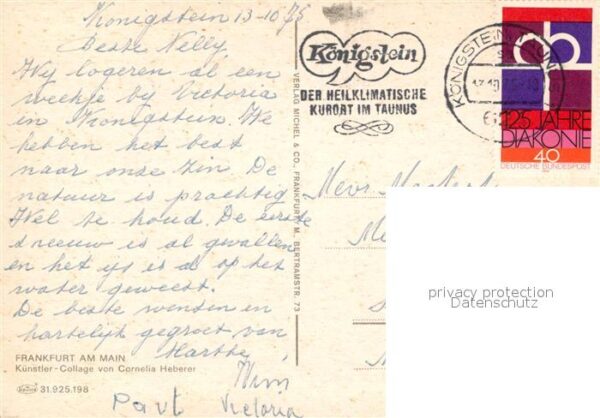 Königstein 13-10-75
Beste Nelly,
Wij logeren al een
weekje bij Victoria
in Kronigstein. We
hebben het best
naar onze zin. De
natuur is prachtig
Wel te koud. De eerste
sneeuw is al gevallen
en het ijs is al op het
water geweest.
De beste wensen en
hartelijk gegroet van
Marthe
Wim
Paul Victoria
FRANKFURT AM MAIN
Künstler-Collage von Cornelia Heberer
31.925.198
VERLAG MICHEL & CO. FRANKFURT M. BERTRAMSTR. 73
Königstein
DER HEILKLIMATISCHE
KURORT IM TAUNUS
KÖNIGSTEIN
125 JAHRE
DIAKONIE
40
DEUTSCHE BUNDESPOST
Mevr
privacy protection
Datenschutz